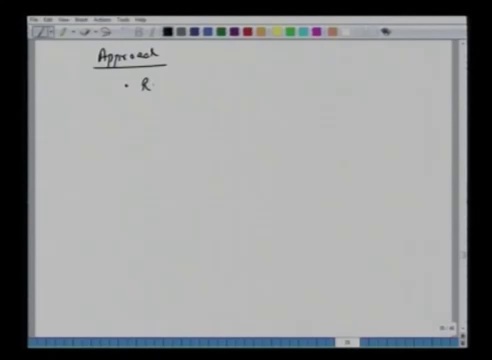 File Edit View Insert Actions Tools Help
Approach
• R